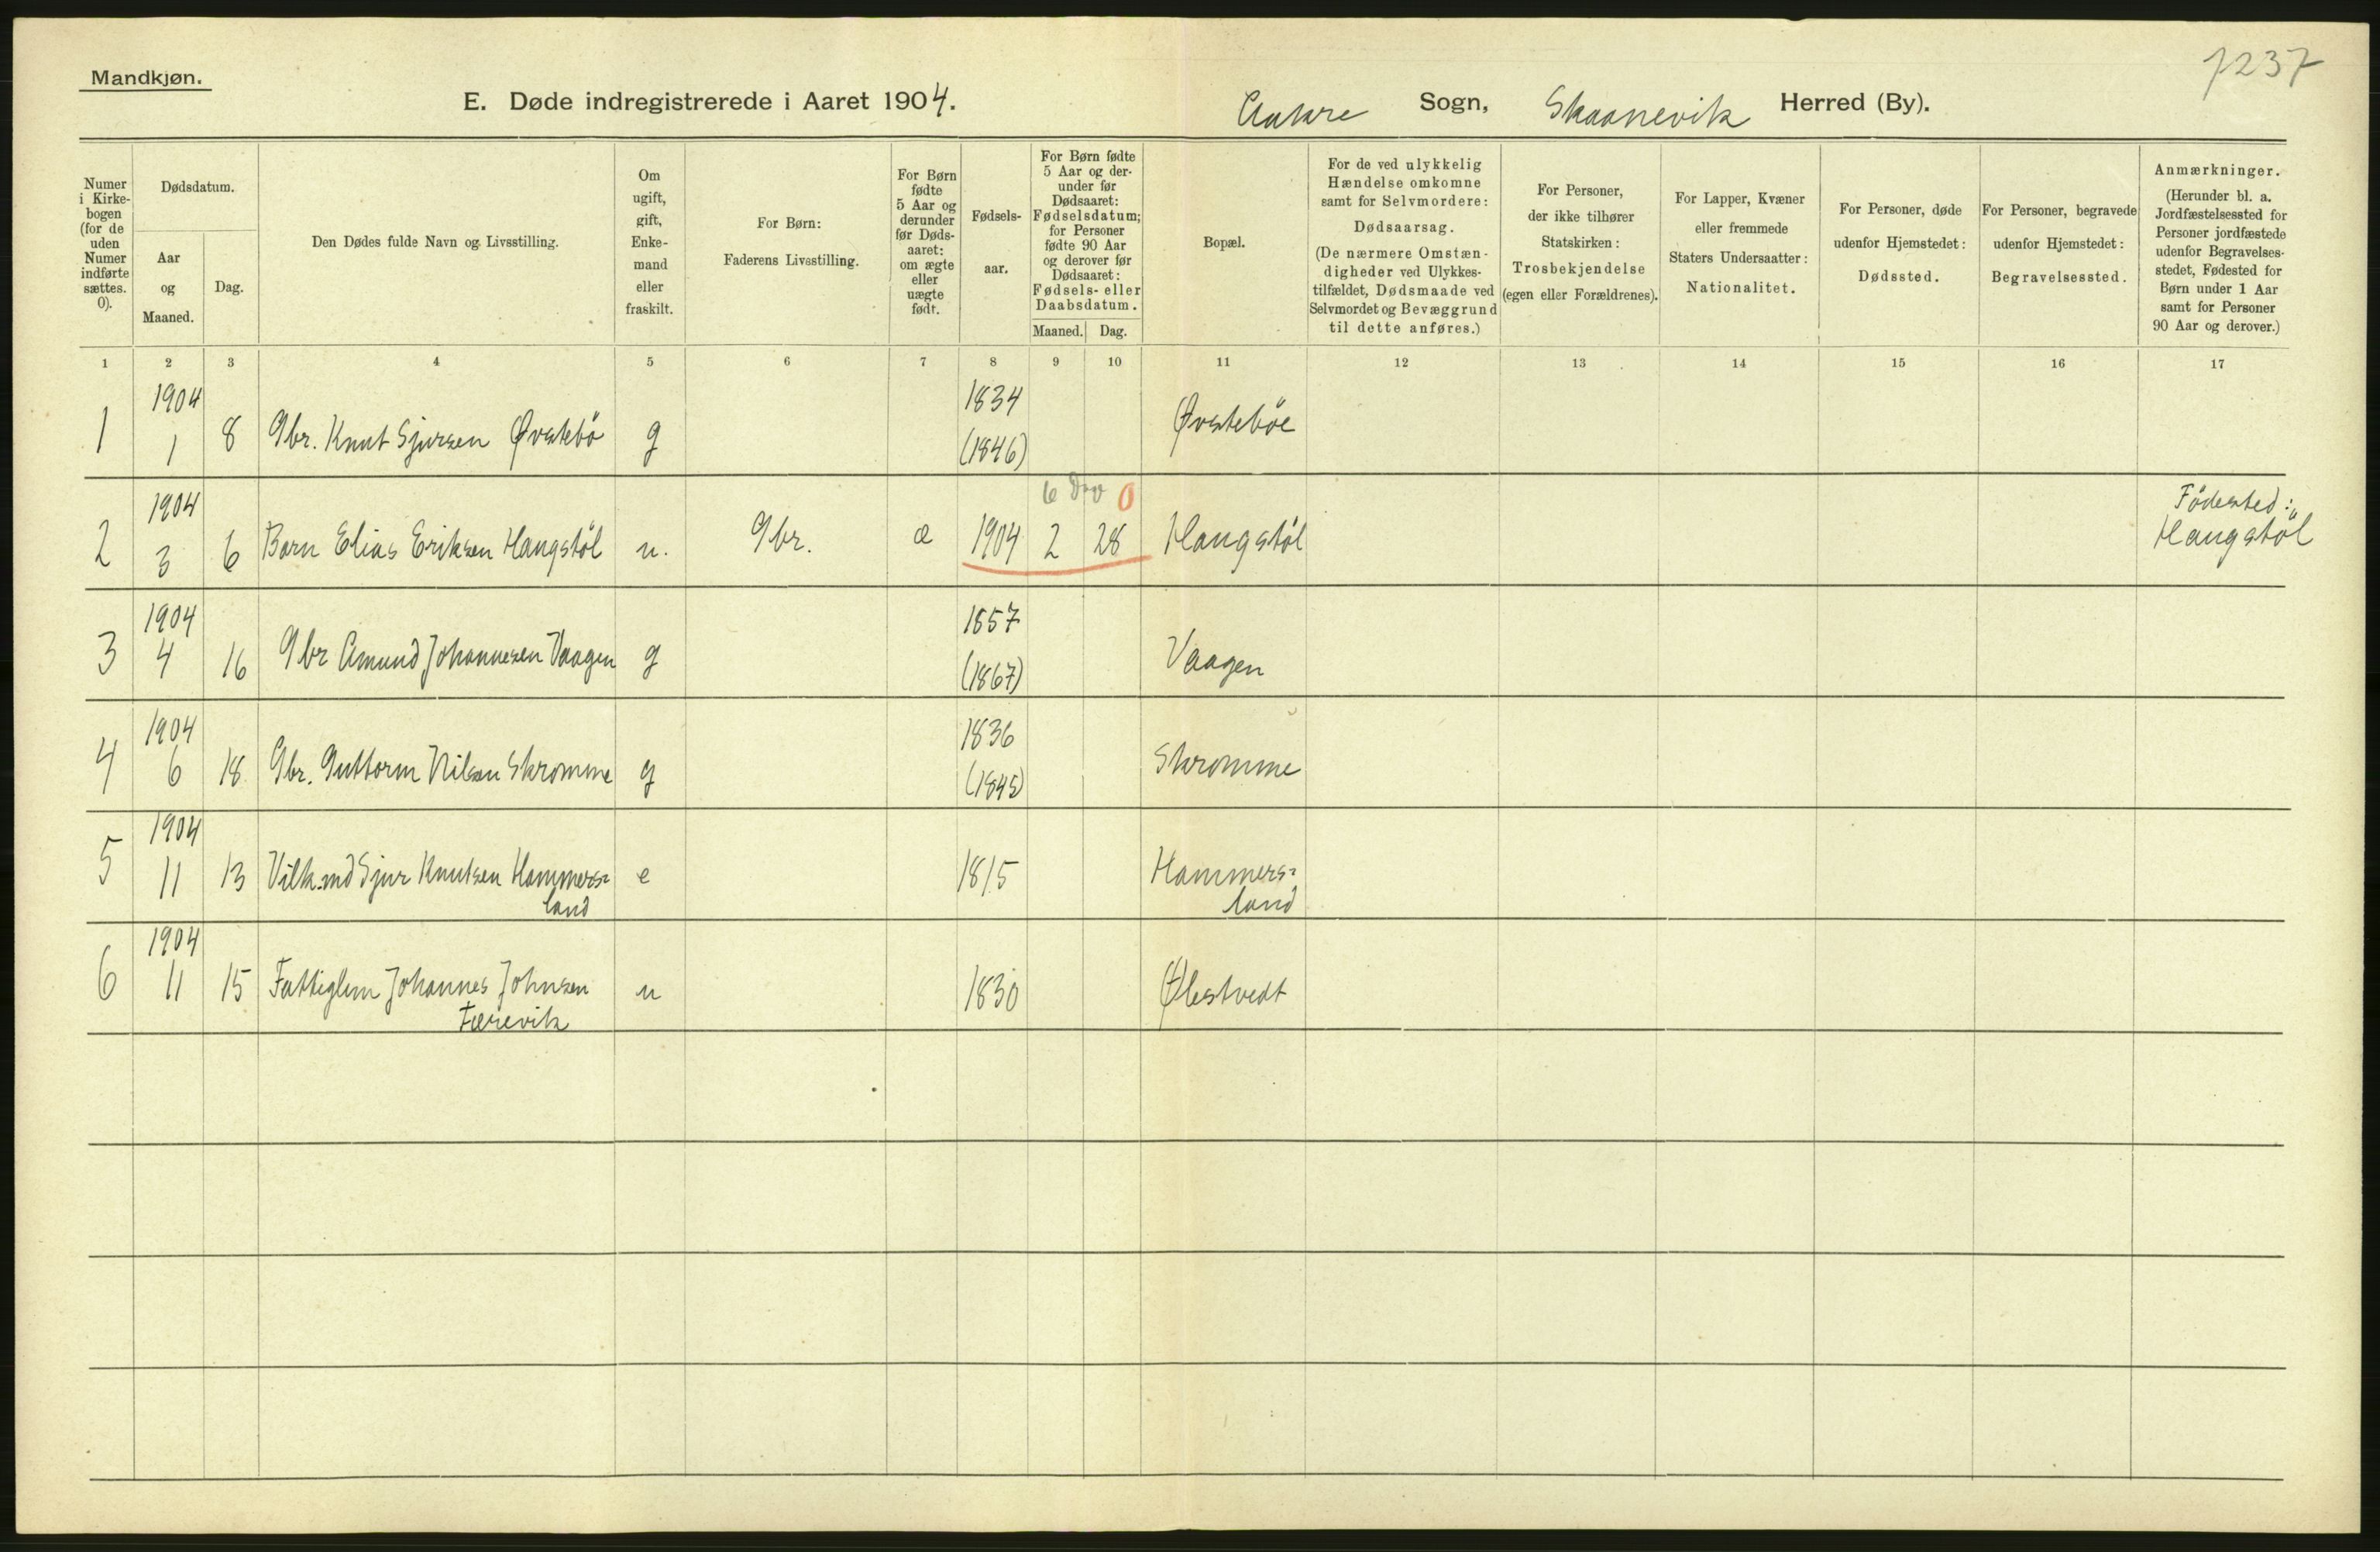 7237
Mandkjøn.
E. Døde indregistrerede i Aaret 1904. Aakre Sogn, Skaanevik Herred (By).
Numer i Kirkebogen (for de uden Numer indførte sættes. 0).
Dødsdatum.
Aar og Maaned.
Dag.
Den Dødes fulde Navn og Livsstilling.
Om ugift, gift, Enkemand eller fraskilt.
For Børn: Faderens Livsstilling.
For Børn fødte 5 Aar og derunder før Dødsaaret: om ægte eller uægte født.
Fødselsaar.
For Børn fødte 5 Aar og derunder før Dødsaaret: Fødselsdatum; for Personer fødte 90 Aar og derover før Dødsaaret: Fødsels- eller Daabsdatum.
Maaned. Dag.
Bopæl.
For de ved ulykkelig Hændelse omkomne samt for Selvmordere: Dødsaarsag. (De nærmere Omstændigheder ved Ulykkestilfældet, Dødsmaade ved Selvmordet og Bevæggrund til dette anføres.)
For Personer, der ikke tilhører Statskirken: Trosbekjendelse (egen eller Forældrenes).
For Lapper, Kvæner eller fremmede Staters Undersaatter: Nationalitet.
For Personer, døde udenfor Hjemstedet: Dødssted.
For Personer, begravede udenfor Hjemstedet: Begravelsessted.
Anmærkninger. (Herunder bl. a. Jordfæstelsessted for Personer jordfæstede udenfor Begravelsesstedet, Fødested for Børn under 1 Aar samt for Personer 90 Aar og derover.)
1 2 3 4 5 6 7 8 9 10 11 12 13 14 15 16 17
1904 1834
1 1 8 Gbr. Knut Sjursen Øvstebö g (1846) Øvsteböe
1904 6 D 0 Födested:
2 3 6 Barn Elias Eriksen Haugstöl u. Gbr. æ 1904 2 28 Haugstöl Haugstöl
1904 1857
3 4 16 Gbr Amund Johannesen Vaagen g (1867) Vaagen
1904 1836
4 6 18 Gbr. Guttorm Nilsen Skromme g (1845) Skromme
1904
5 11 13 Vilk.md Sjur Knutsen Hammers= e 1815 Hammers=
land land
1904
6 11 15 Fattiglem Johannes Johnsen u 1830 Ølestvedt
Færevik